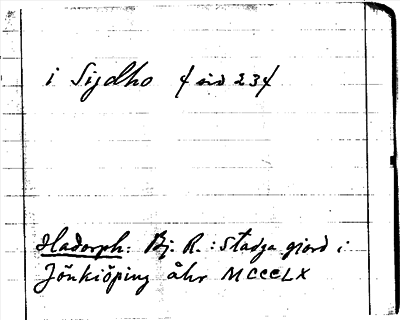 i Sijdho ⟨ sid 234
Hadorph: Bj. R.: Stadga gjord i
Jönkiöping åhr MCCCLX